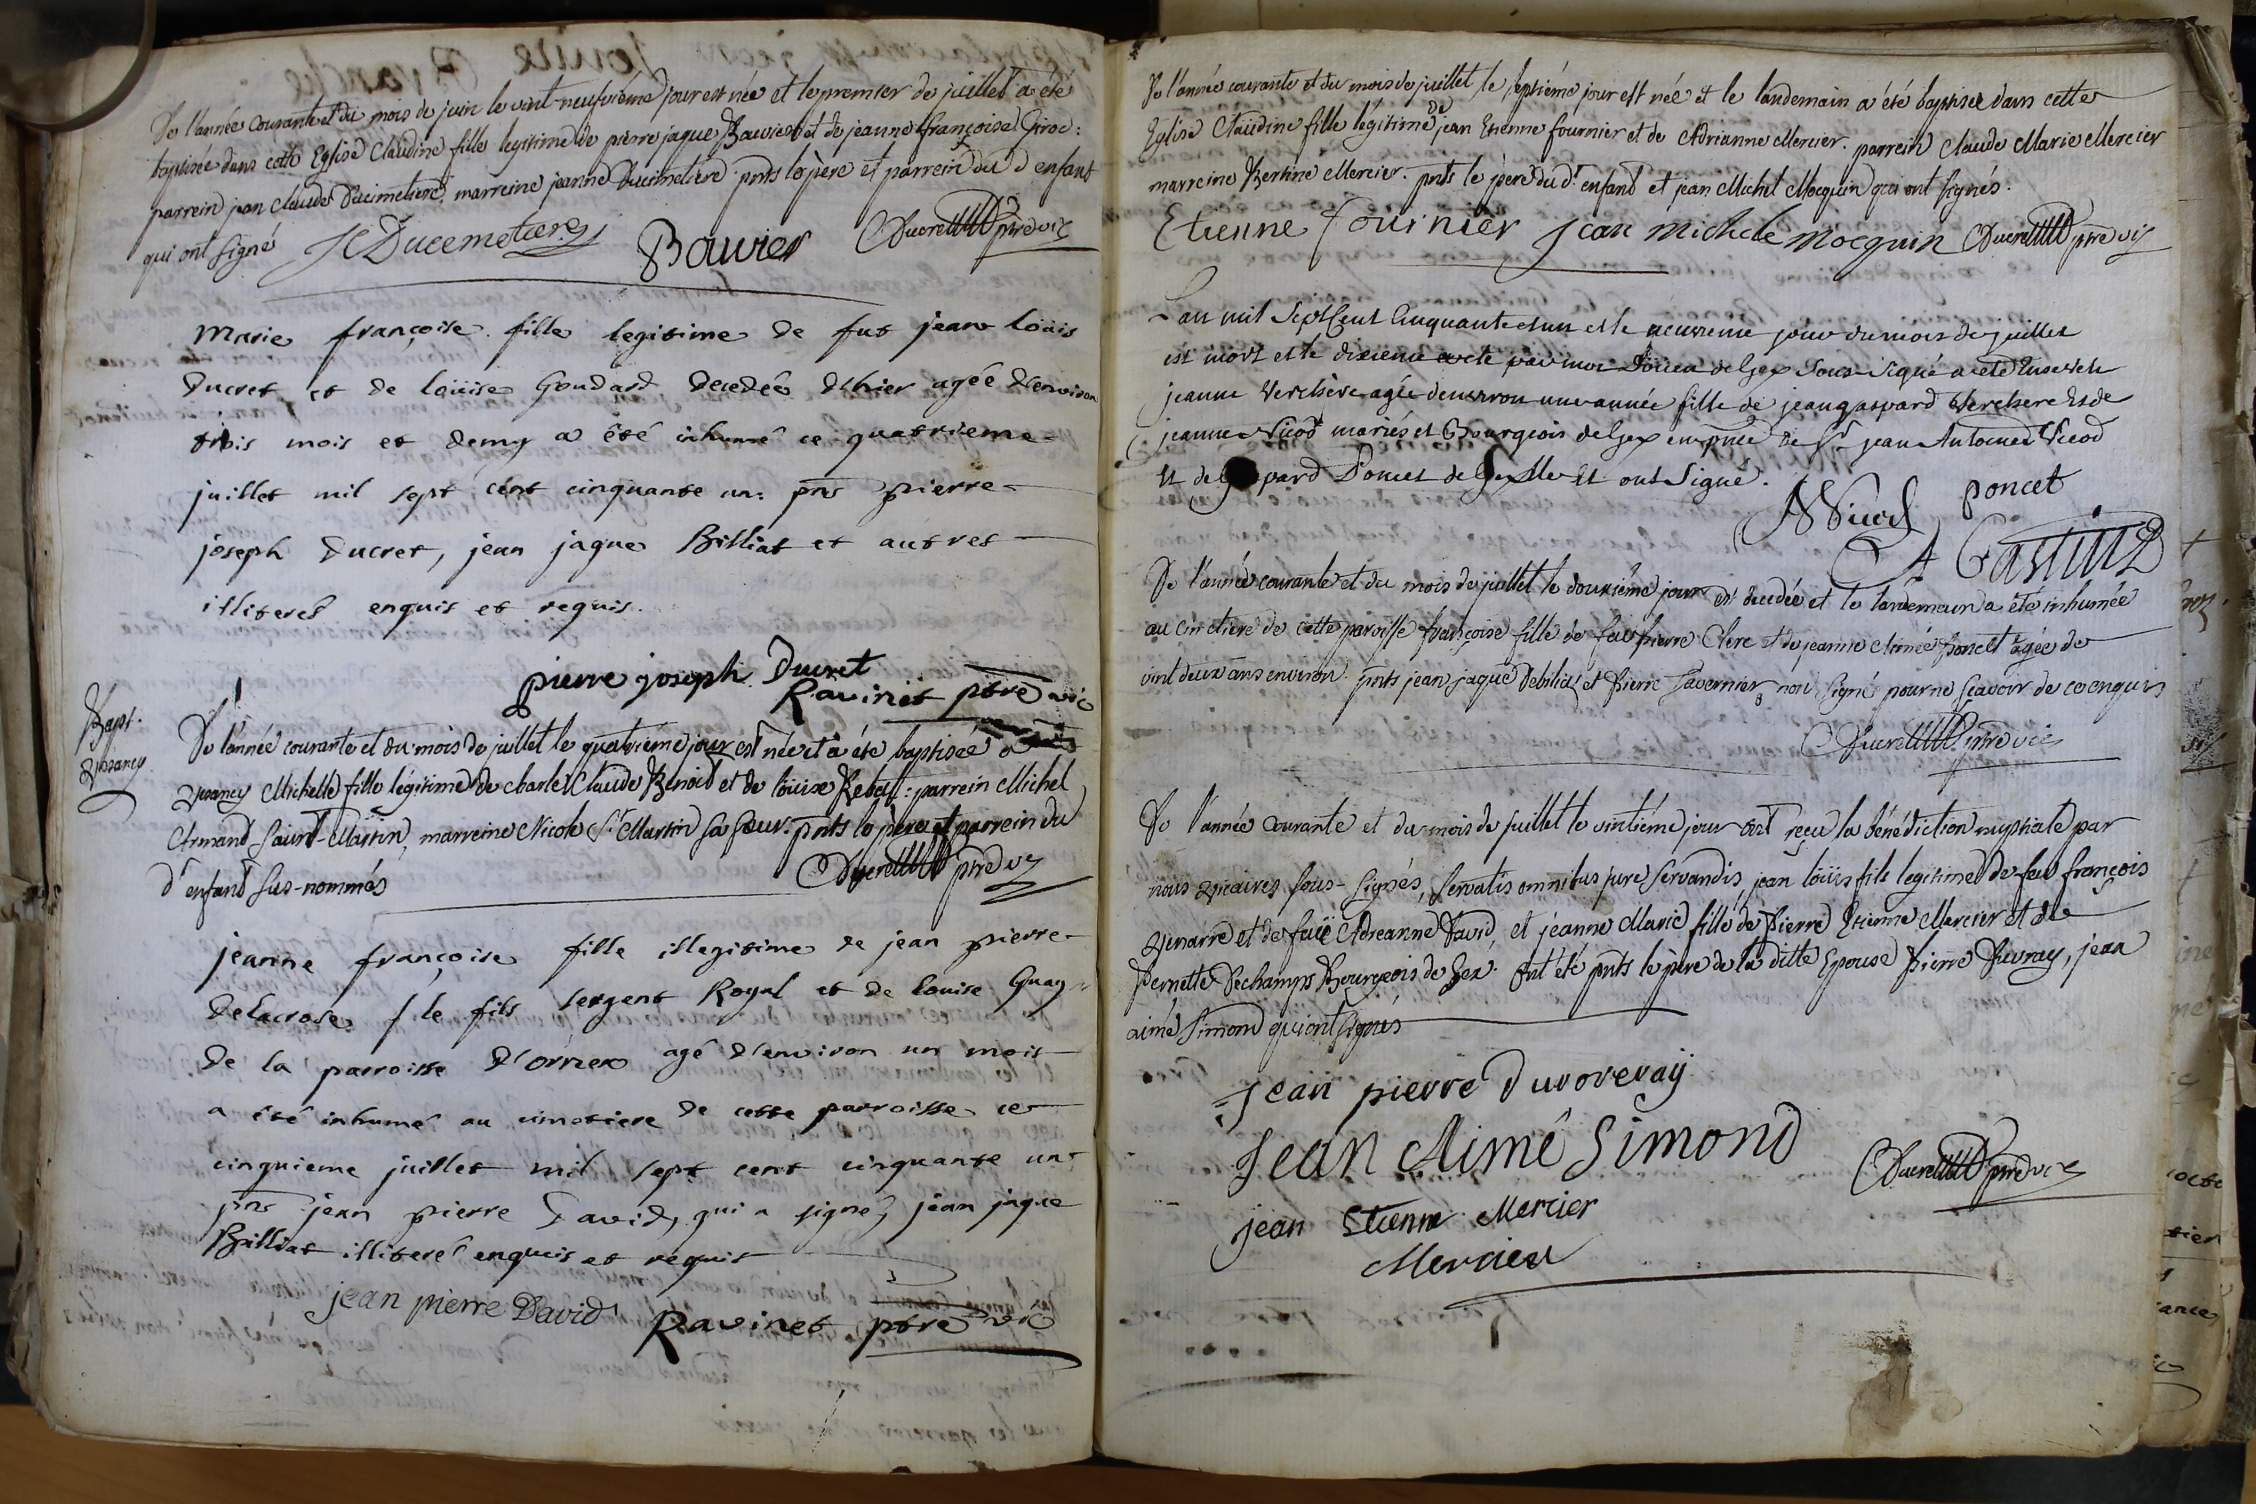 De l'année courante et du mois de juin le vint-neufvième jour est née et le premier de juillet a été
baptisée dans cette Eglise Claudine fille legitime de pierre jaque Bauvier et de jeanne françoise Giroc:
parrein jean claude Ducimetiere, marreine jeanne Ducimetiere. pnts le père et parrein du d enfant
qui ont signé JC Ducemetiere Bauvier Ducret ptre vic
Marie françoise fille legitime de fut jean loüis
Ducret et de loüise Goudard decedée d'hier agée d'environ
trois mois et demy a été inhumé ce quatrieme
juillet mil sept cent cinquante un: pnts pierre
joseph Ducret, jean jaque Billiat et autres
illiterés enquis et requis.
pierre joseph Ducret
Ravinet ptre vic
Bapt.
De l'année courante et du mois de juillet le quatriéme jour est née et a été baptisée
Michelle fille légitime de charle Claude Benoid et de loüise Rebat: parrein Michel
Armand Saint-Martin, marreine Nicole St Martin sa sœur. pnts le père et parrein du
d' enfant sus-nommés Ducret ptre vic
jeanne françoise fille illegitime de jean pierre
Delacrose f le fils sergent Royal et de louise
de la parroisse d'ornex agé d'environ un mois
a été inhumé au cimetiere de cette parroisse ce
cinquieme juillet mil sept cent cinquante un
pnts jean pierre David, qui a signé, jean jaque
Billiat illiteré enquis et requis
jean pierre David Ravinet ptre vic
De l'année courante et du mois de juillet le septiéme jour est née et le landemain a été baptisée dans cette
Eglise Claudine fille légitime de jean Etienne fournier et de Adrianne Mercier. parrein Claude Marie Mercier
marreine Bertine Mercier. pnts le père du dt enfant et jean Michel Mocquin qui ont signés.
Etienne fournier Jean michele mocquin Ducret ptre vic
L'an mil Sept Cent Cinquante et un et le neuvieme jour du mois de juillet
est mort et le dixieme acté par moi Doïen de Gex Sous-Signé a eté Ensevelie
jeanne Verchere agée d'environ une année fille de jean gaspard Verchere et de
jeanne Nicod mariés et Bourgeois de Gex en pnce de Sr jean Antoine Nicod
Et de Gaspard Poncet de Gex Et ont Signé.
Nicod poncet
Castin
De l'année courante et du mois de juillet le douxiême jour est decedée et le landemain a été inhumée
au cimetiere de cette paroisse françoise fille de feu pierre Clerc et de jeanne Aimée Poncet agée de
vint deux ans environ. pnts jean jaque Debiliat et Pierre Tavernier non signé pour ne sçavoir de ce enquis
Ducret ptre vic
De l'année courante et du mois de juillet le vintiéme jour ont reçu la bénédiction nuptiale par
nous vicaires sous-signés, servatis omnibus jure servandis, jean loüis fils legitime de feu françois
et de Adreanne David, et jeanne Marie fille de Pierre Etienne Mercier et de
Pernette Dechamps Bourgeois de Gex. Ont été pnts le père de la ditte Epouse Pierre, jean
aimé Simond qui ont signés
Jean pierre Duvoveraÿ
Jean Aimé Simond
Ducret ptre vic
jean Etienne Mercier
Mercier